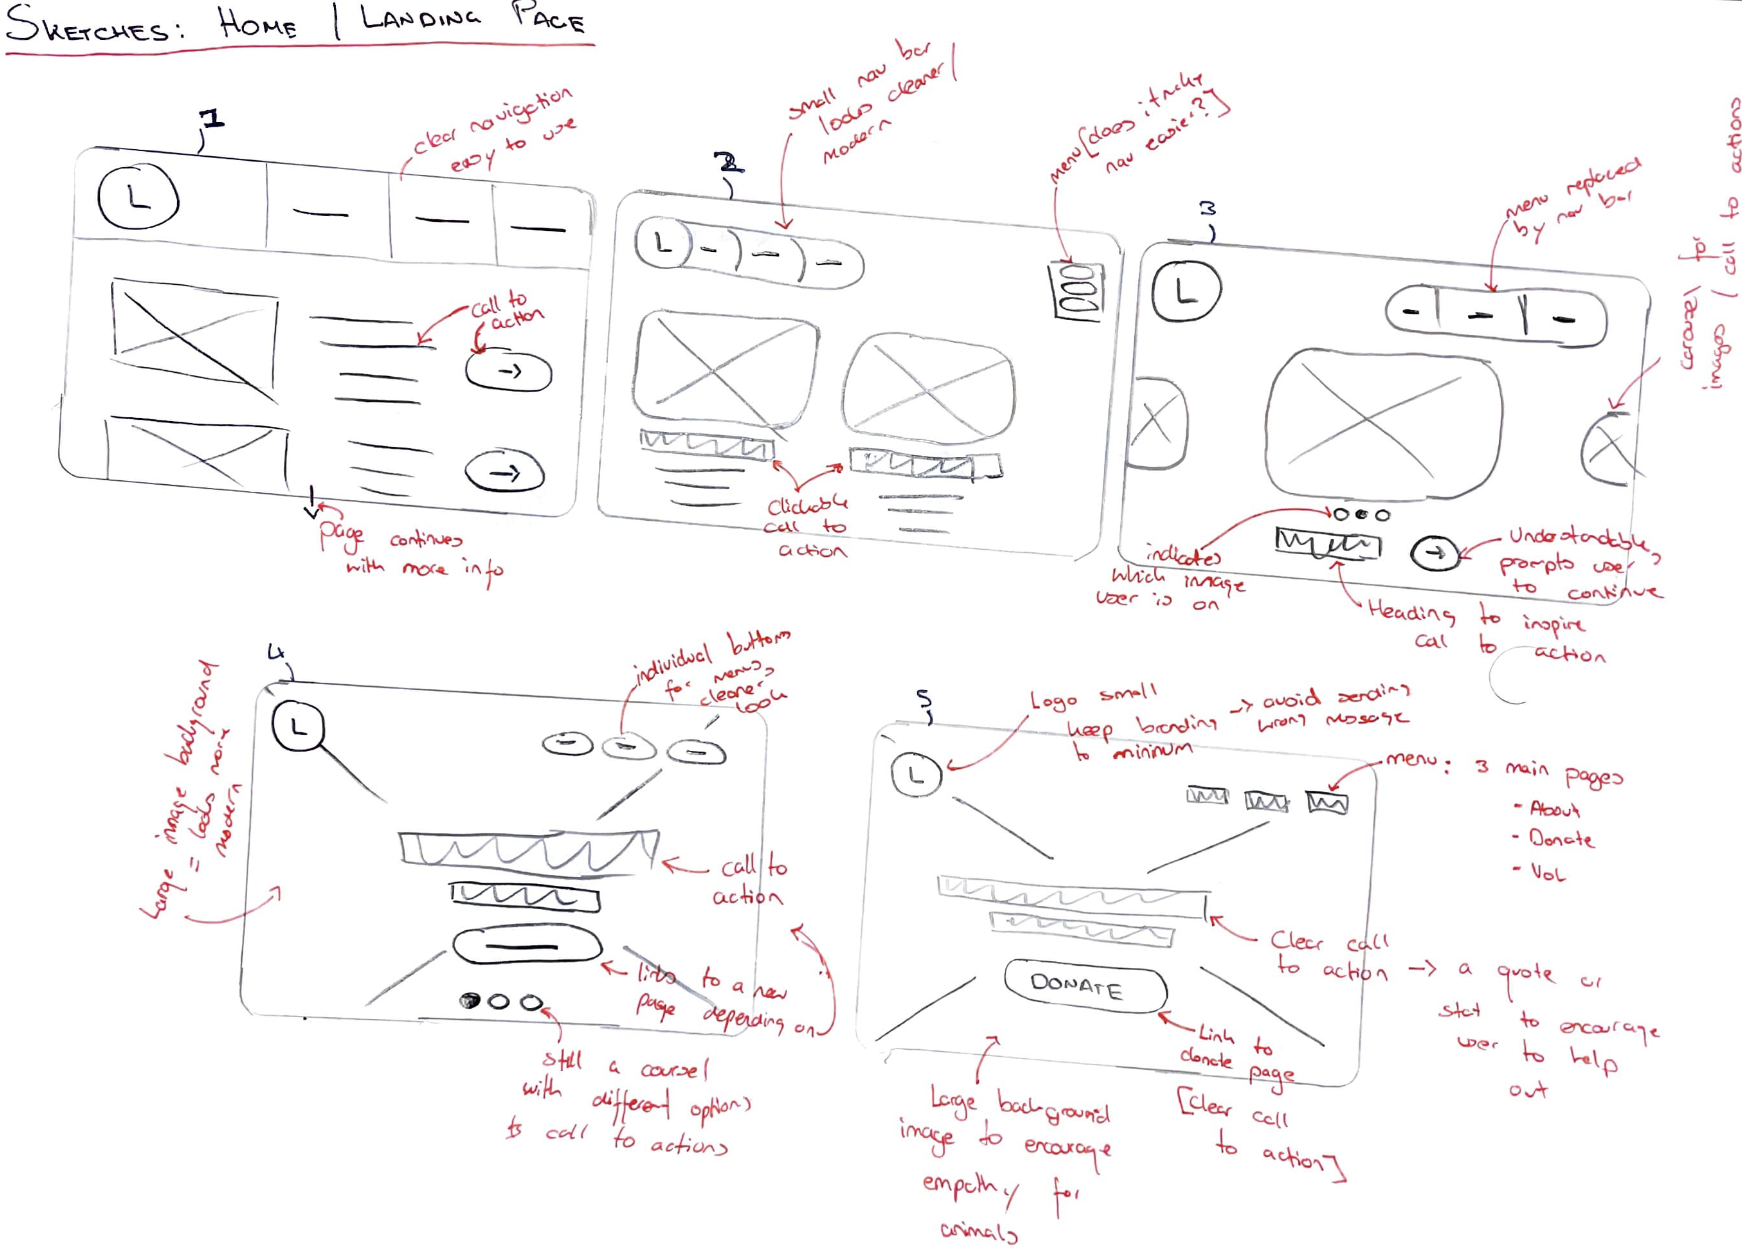 SKETCHES: HOME / LANDING PAGE
1
clear navigation
easy to use
L
call to
action
page continues
with more info
2
small nav bar
looks cleaner/
modern
menu [does it make
nav easier?]
L
Clickable
call to
action
3
menu replaced
by nav bar
carousel for
images / call to actions
L
indicates
which image
user is on
Understandable,
prompts user
to continue
Heading to inspire
call to action
4
individual buttons
for menus,
cleaner
look
Large image background
= looks more
modern
L
call to
action
links to a new
page depending on
still a coursel
with different options
to call to actions
5
Logo small
keep branding → avoid sending
to minimum wrong message
menu: 3 main pages
- About
- Donate
- Vol
L
Clear call
to action → a quote or
stat to encourage
user to help
out
DONATE
Link to
donate
page
[clear call
to action]
Large background
image to encourage
empathy for
animals